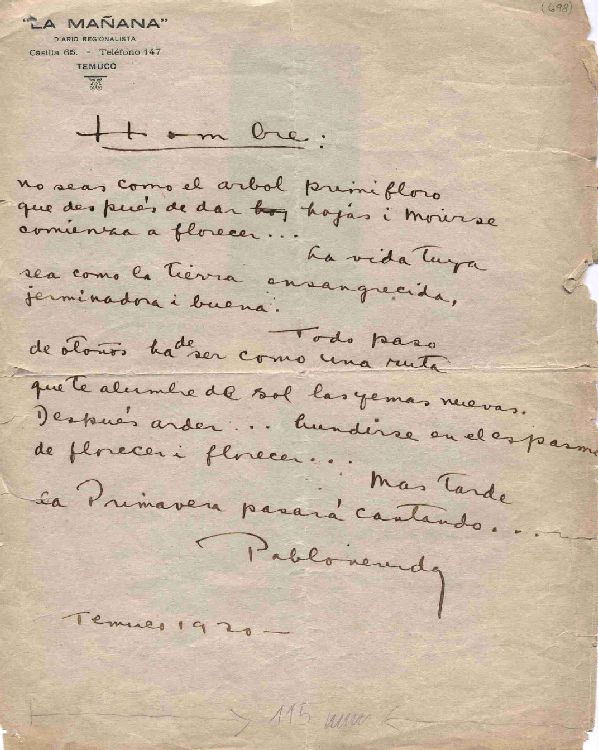 (698)
"LA MAÑANA"
DIARIO REGIONALISTA
Casilla 65. - Teléfono 147
TEMUCO
Hombre:
no seas como el arbol primifloro
que después de dar hoj hojas i morirse
comienza a florecer...
La vida tuya
sea como la tierra ensangrecida,
jerminadora i buena.
Todo paso
de otoños ha de ser como una ruta
que te alumbre de sol las yemas nuevas.
Después arder... hundirse en el espasmo
de florecer i florecer...
Mas tarde
la Primavera pasará cantando...
Pablo neruda
Temuco 1920 —
115 mm